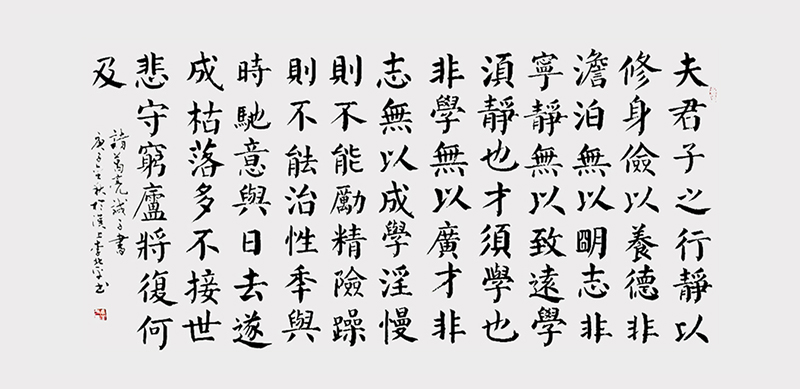 夫君子之行靜以
修身儉以養德非
澹泊無以明志非
寧靜無以致遠學
湏靜也才須學也
非學無以廣才非
志無以成學淫慢
則不能勵精險躁
則不能治性秊與
時馳意與日去遂
成枯落多不接世
悲守窮廬將復何
及
諸葛亮誡子書
庚子之秋於漢上李